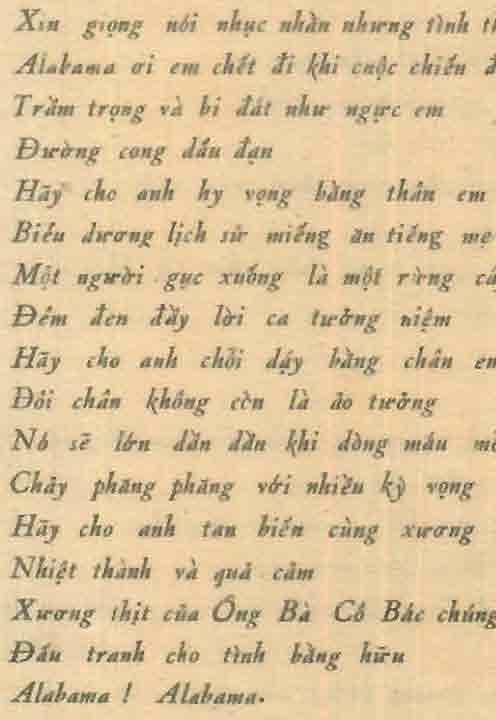 Xin giọng nói nhục nhằn nhưng tình
Alabama ơi em chết đi khi cuộc chiến
Trầm trọng và bi đát như ngực em
Đường cong dấu đạn
Hãy cho anh hy vọng bằng thân em
Biểu dương lịch sử miếng ăn tiếng mẹ
Một người gục xuống là một rừng
Đêm đen đầy lời ca tưởng niệm
Hãy cho anh chỗi dậy bằng chân em
Đôi chân không còn là ảo tưởng
Nó sẽ lớn dần dần khi dòng máu
Chảy phăng phăng với nhiều kỳ vọng
Hãy cho anh tan biến cùng xương
Nhiệt thành và quả cảm
Xương thịt của Ông Bà Cô Bác chúng
Đấu tranh cho tình bằng hữu
Alabama ! Alabama.